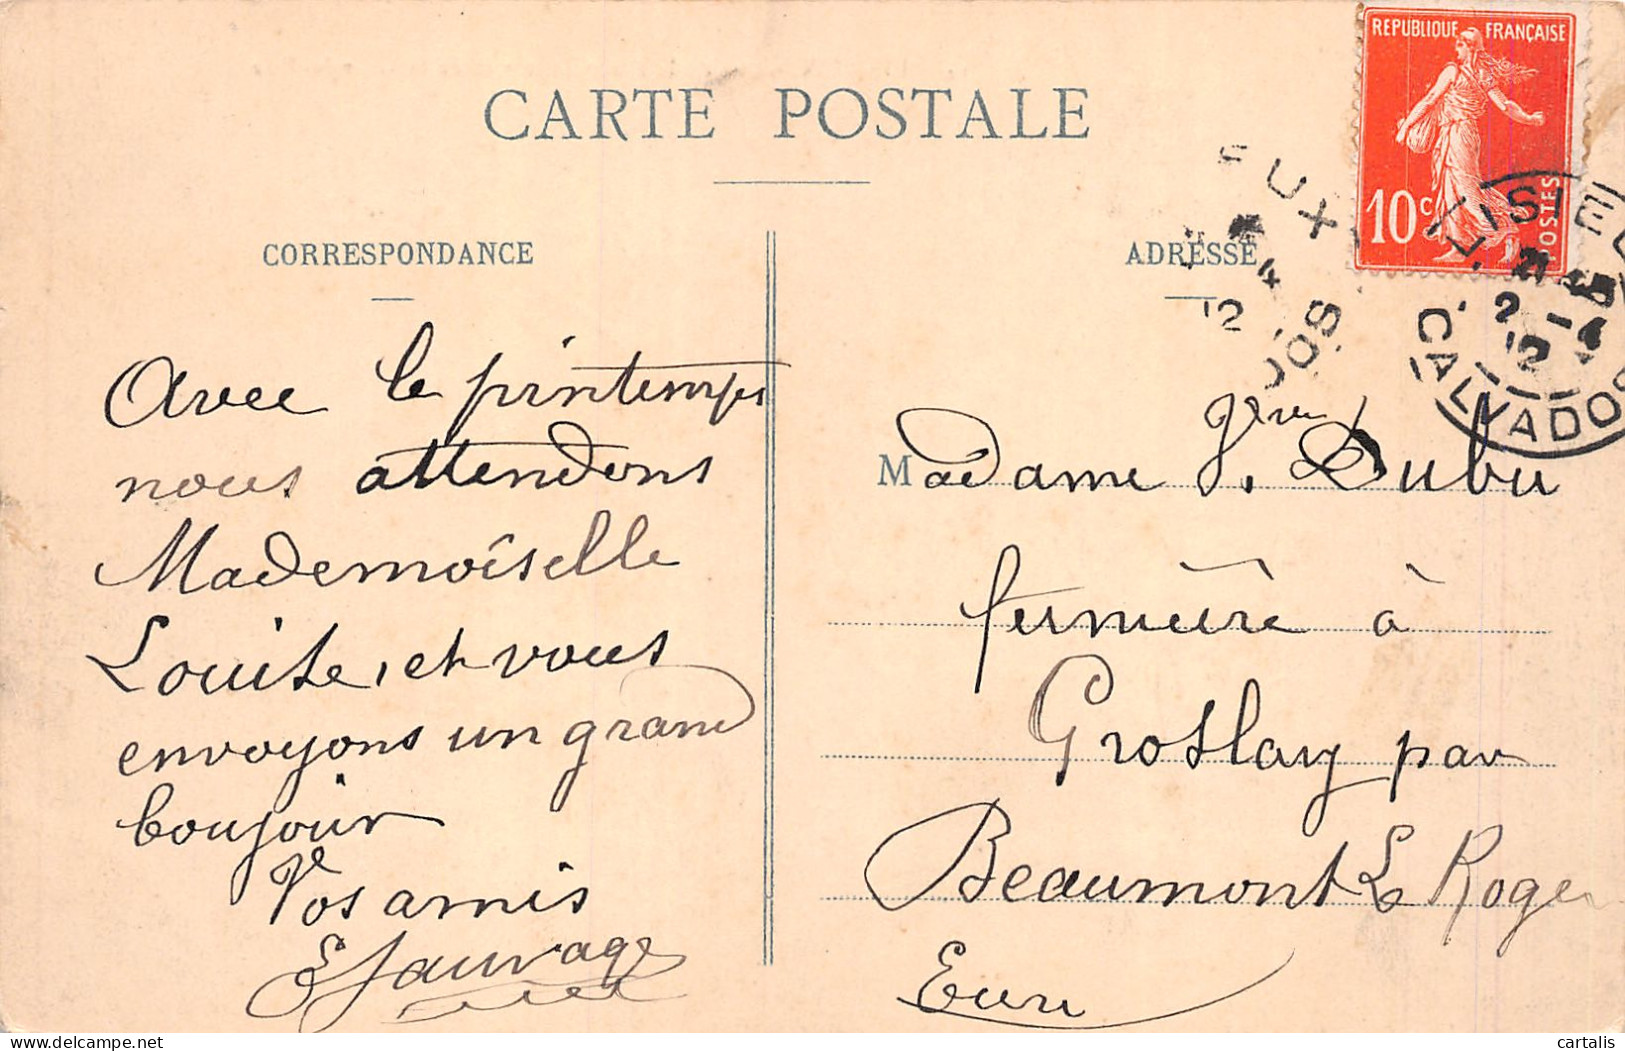 CARTE POSTALE
CORRESPONDANCE
Avec le printemps
nous attendons
Mademoiselle
Louise, et vous
envoyons un grand
boujour
Vos amis
E Sauvage
REPUBLIQUE FRANÇAISE
10c
POSTES
LISIEU
CALVADOS
21
2 - 4
12
EUX
4
12
DOS
ADRESSE
Madame Vve J. Dubu
fermière à
Groslay par
Beaumont Le Roger
Eure
cartalis